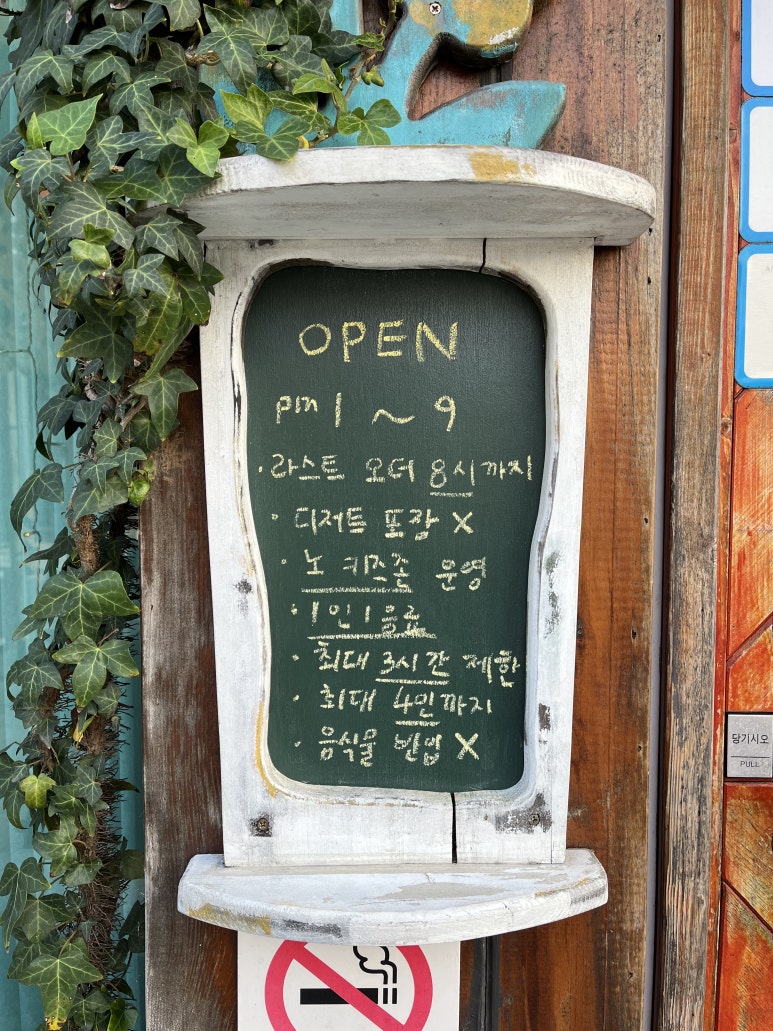 OPEN
pm 1 ~ 9
· 라스트 오더 8시까지
· 디저트 포장 X
· 노 키즈존 운영
· 1인 1음료
· 최대 3시간 제한
· 최대 4인까지
· 음식물 반입 X
당기시오
PULL